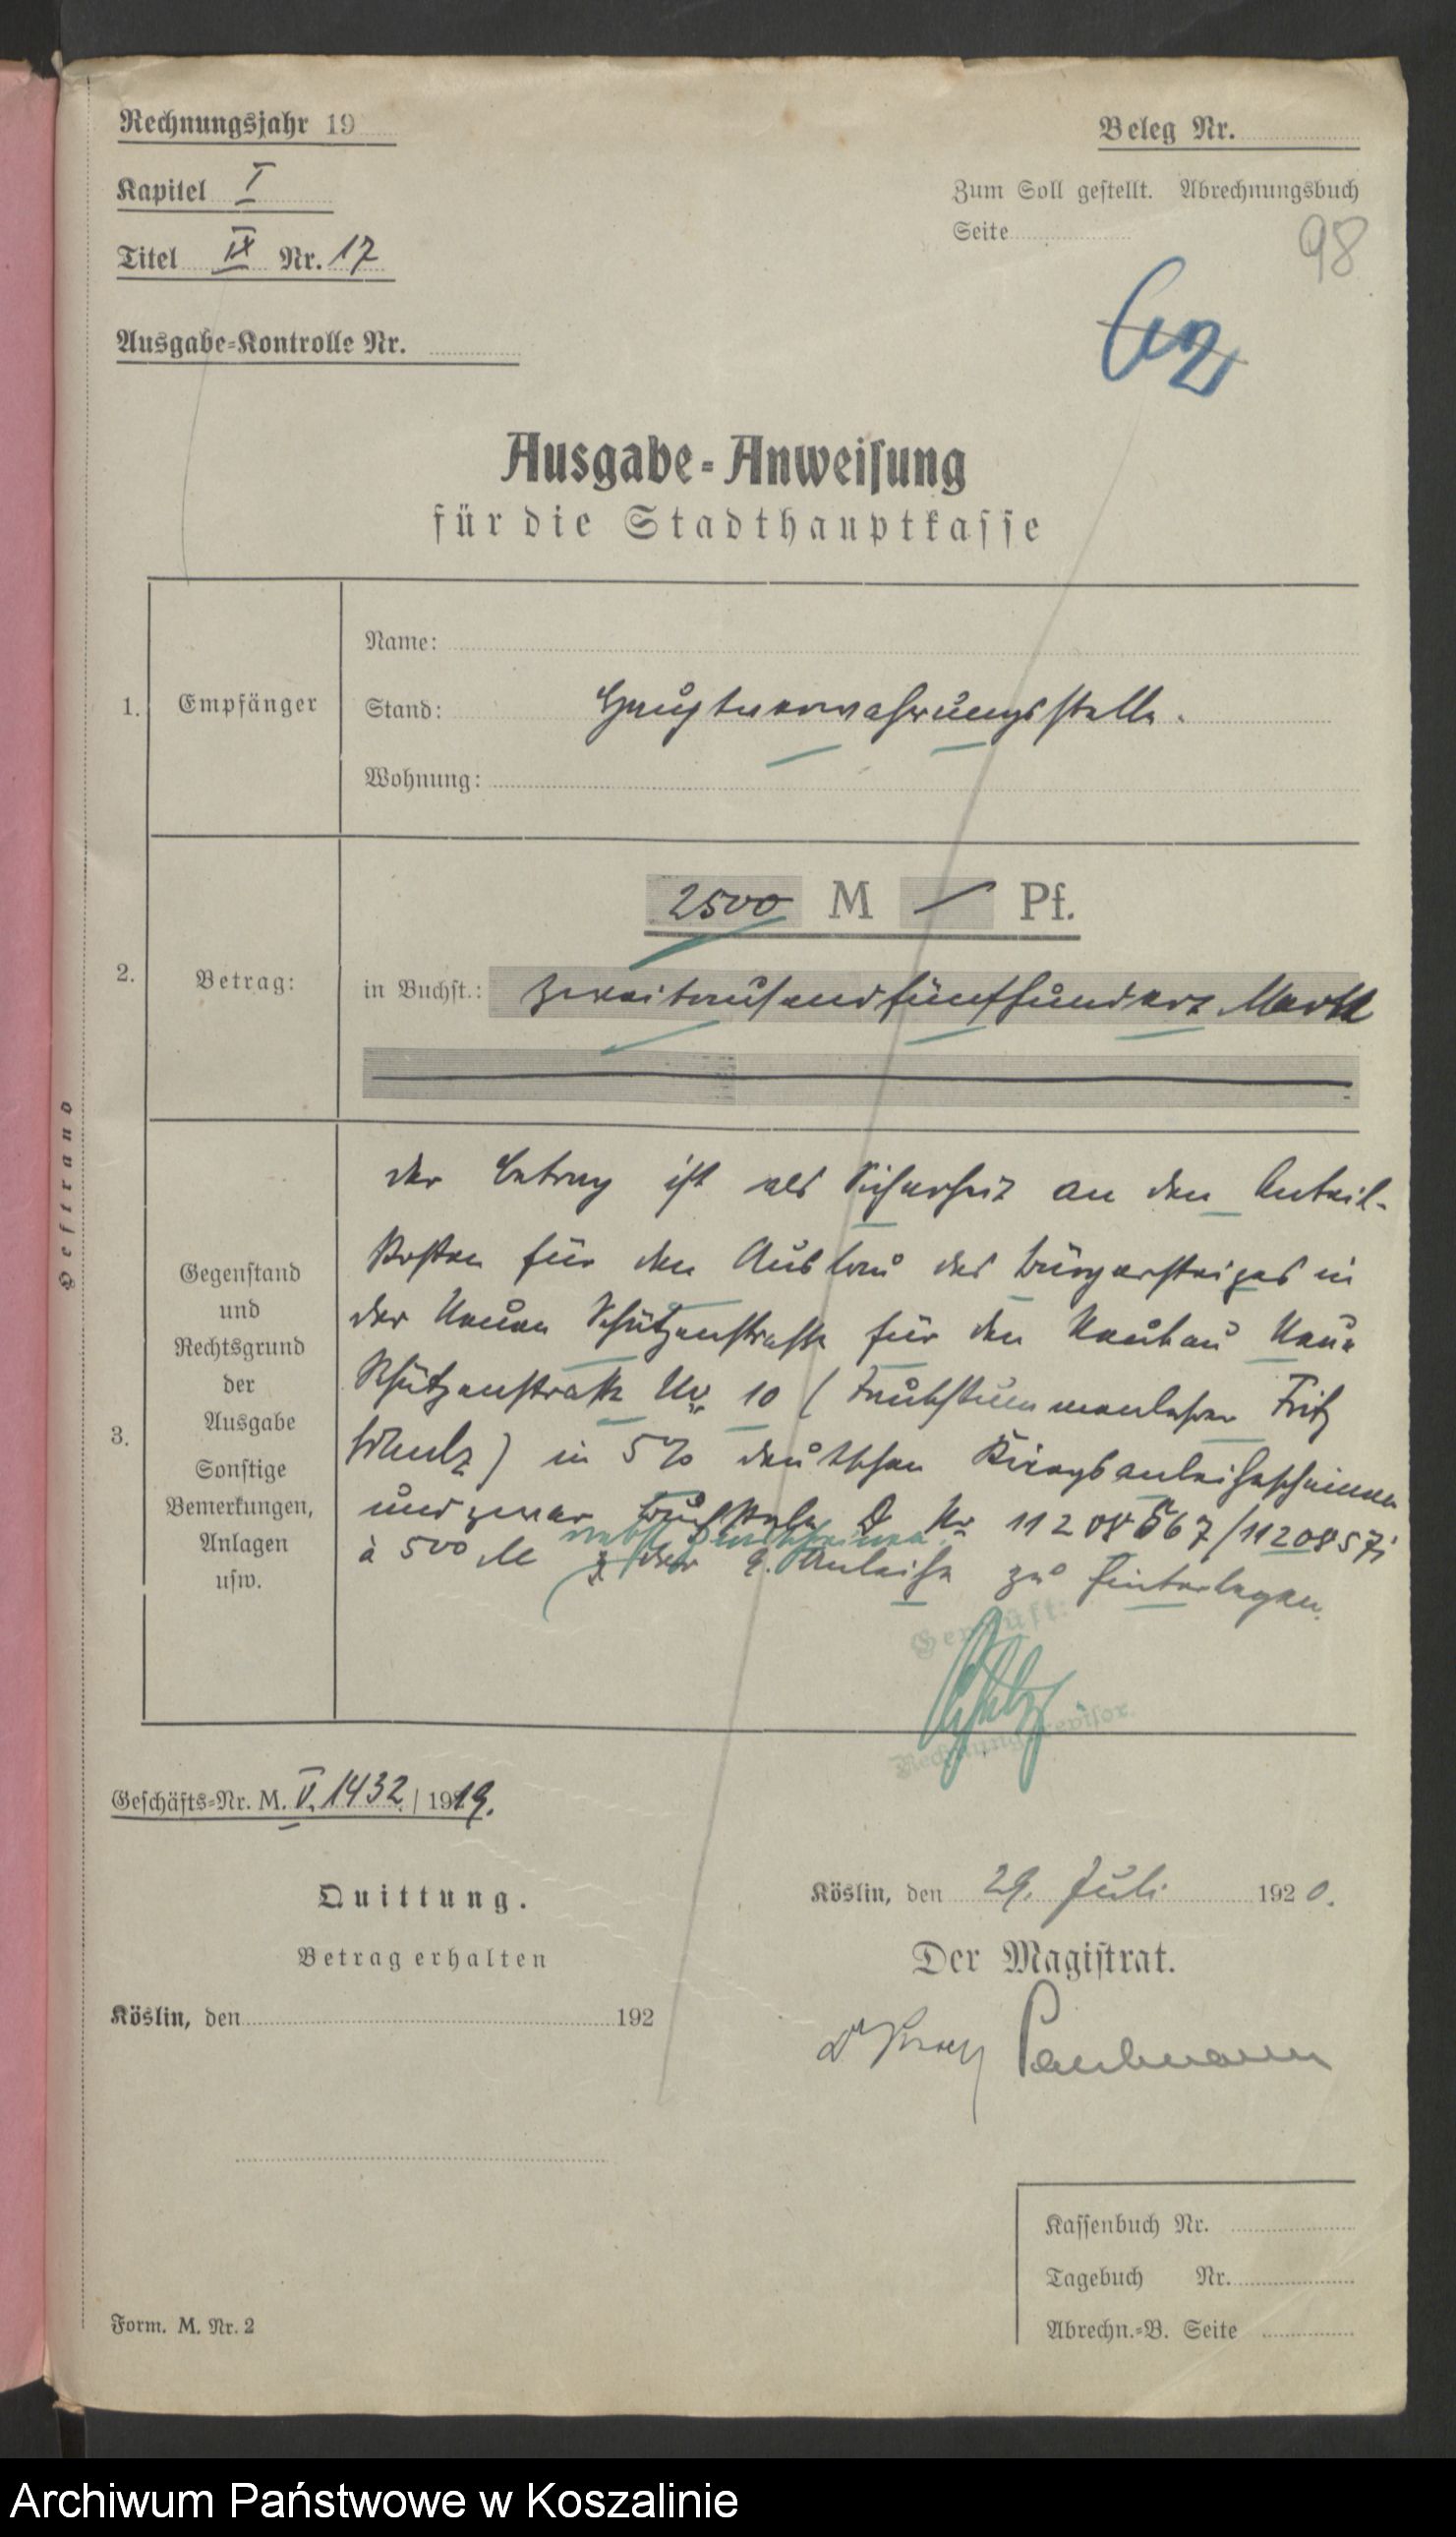 Rechnungsjahr 19
Beleg Nr.
Kapitel I
Zum Soll gestellt. Abrechnungsbuch
Seite
98
Titel IX Nr. 17
Ausgabe-Kontrolle Nr.
62
Ausgabe-Anweisung
für die Stadthauptkasse
Heftrand
1. Empfänger
Name:
Stand: Hauptverwahrungsstelle.
Wohnung:
2. Betrag:
2500 M — Pf.
in Buchst.: Zweitausendfünfhundert Mark
3. Gegenstand
und
Rechtsgrund
der
Ausgabe
Sonstige
Bemerkungen,
Anlagen
usw.
der Betrag ist als Sicherheit an den Anteil-
kosten für den Ausbau des Bürgersteiges in
der Neuen Schützenstraße für den Neubau Neue
Schützenstraße Nr. 10 ( Fritz
Schulz) in 5% deutschen Kriegsanleihescheinen
und zwar Buchstabe D Nr 11208567/11208571
nebst Zinsscheinen
à 500 M der 9. Anleihe zu hinterlegen.
Geprüft:
Schulz
Rechnungsrevisor.
Geschäfts-Nr. M. V. 1432. / 1919.
Quittung.
Betrag erhalten
Köslin, den 192
Köslin, den 29. Juli 1920.
Der Magistrat.
Dr Paulmann
Kassenbuch Nr.
Tagebuch Nr.
Abrechn.-B. Seite
Form. M. Nr. 2
Archiwum Państwowe w Koszalinie